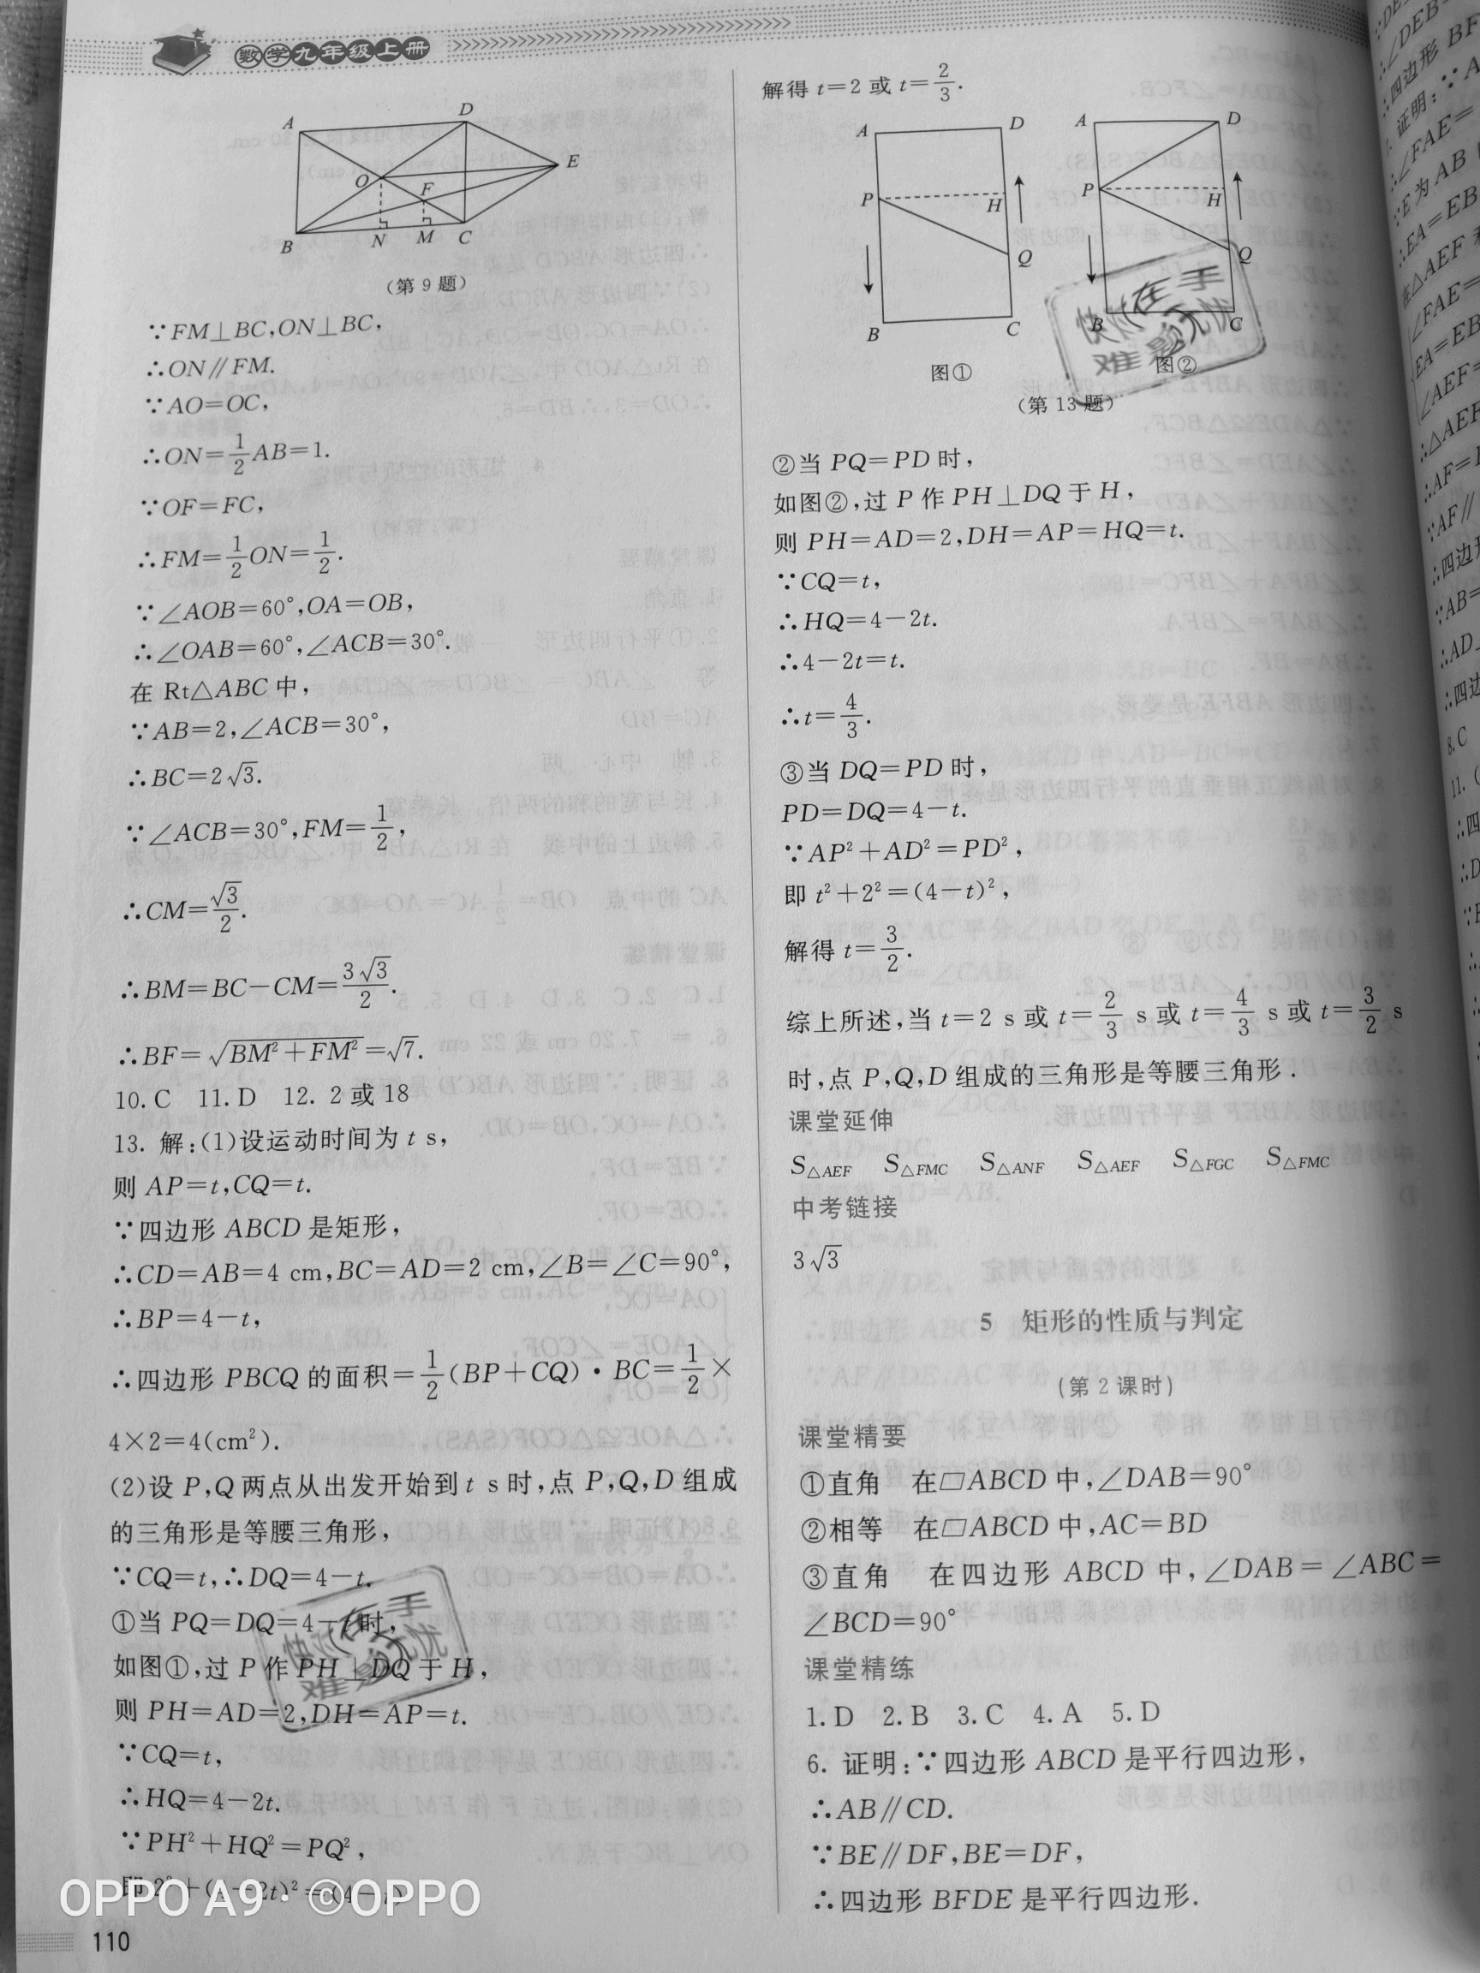 数学九年级上册
A D E O F B N M C
(第 9 题)
∵FM⊥BC,ON⊥BC,
∴ON∥FM.
∵AO=OC,
∴ON=1/2AB=1.
∵OF=FC,
∴FM=1/2ON=1/2.
∵∠AOB=60°,OA=OB,
∴∠OAB=60°,∠ACB=30°.
在 Rt△ABC 中,
∵AB=2,∠ACB=30°,
∴BC=2√3.
∵∠ACB=30°,FM=1/2,
∴CM=√3/2.
∴BM=BC−CM=3√3/2.
∴BF=√(BM²+FM²)=√7.
10. C 11. D 12. 2 或 18
13. 解:(1)设运动时间为 t s,
则 AP=t,CQ=t.
∵四边形 ABCD 是矩形,
∴CD=AB=4 cm,BC=AD=2 cm,∠B=∠C=90°,
∴BP=4−t,
∴四边形 PBCQ 的面积=1/2(BP+CQ)·BC=1/2×
4×2=4(cm²).
(2)设 P,Q 两点从出发开始到 t s 时,点 P,Q,D 组成
的三角形是等腰三角形,
∵CQ=t,∴DQ=4−t.
①当 PQ=DQ=4−t 时,
如图①,过 P 作 PH⊥DQ 于 H,
则 PH=AD=2,DH=AP=t.
∵CQ=t,
∴HQ=4−2t.
∵PH²+HQ²=PQ²,
OPPO A9 · ©OPPO
110
解得 t=2 或 t=2/3.
A D P H Q B C
图①
A D P H Q B C
图②
(第 13 题)
快对在手
难题无忧
②当 PQ=PD 时,
如图②,过 P 作 PH⊥DQ 于 H,
则 PH=AD=2,DH=AP=HQ=t.
∵CQ=t,
∴HQ=4−2t.
∴4−2t=t.
∴t=4/3.
③当 DQ=PD 时,
PD=DQ=4−t.
∵AP²+AD²=PD²,
即 t²+2²=(4−t)²,
解得 t=3/2.
综上所述,当 t=2 s 或 t=2/3 s 或 t=4/3 s 或 t=3/2 s
时,点 P,Q,D 组成的三角形是等腰三角形.
课堂延伸
S△AEF S△FMC S△ANF S△AEF S△FGC S△FMC
中考链接
3√3
5 矩形的性质与判定
(第 2 课时)
课堂精要
①直角 在□ABCD 中,∠DAB=90°
②相等 在□ABCD 中,AC=BD
③直角 在四边形 ABCD 中,∠DAB=∠ABC=
∠BCD=90°
课堂精练
1. D 2. B 3. C 4. A 5. D
6. 证明:∵四边形 ABCD 是平行四边形,
∴AB∥CD.
∵BE∥DF,BE=DF,
∴四边形 BFDE 是平行四边形.